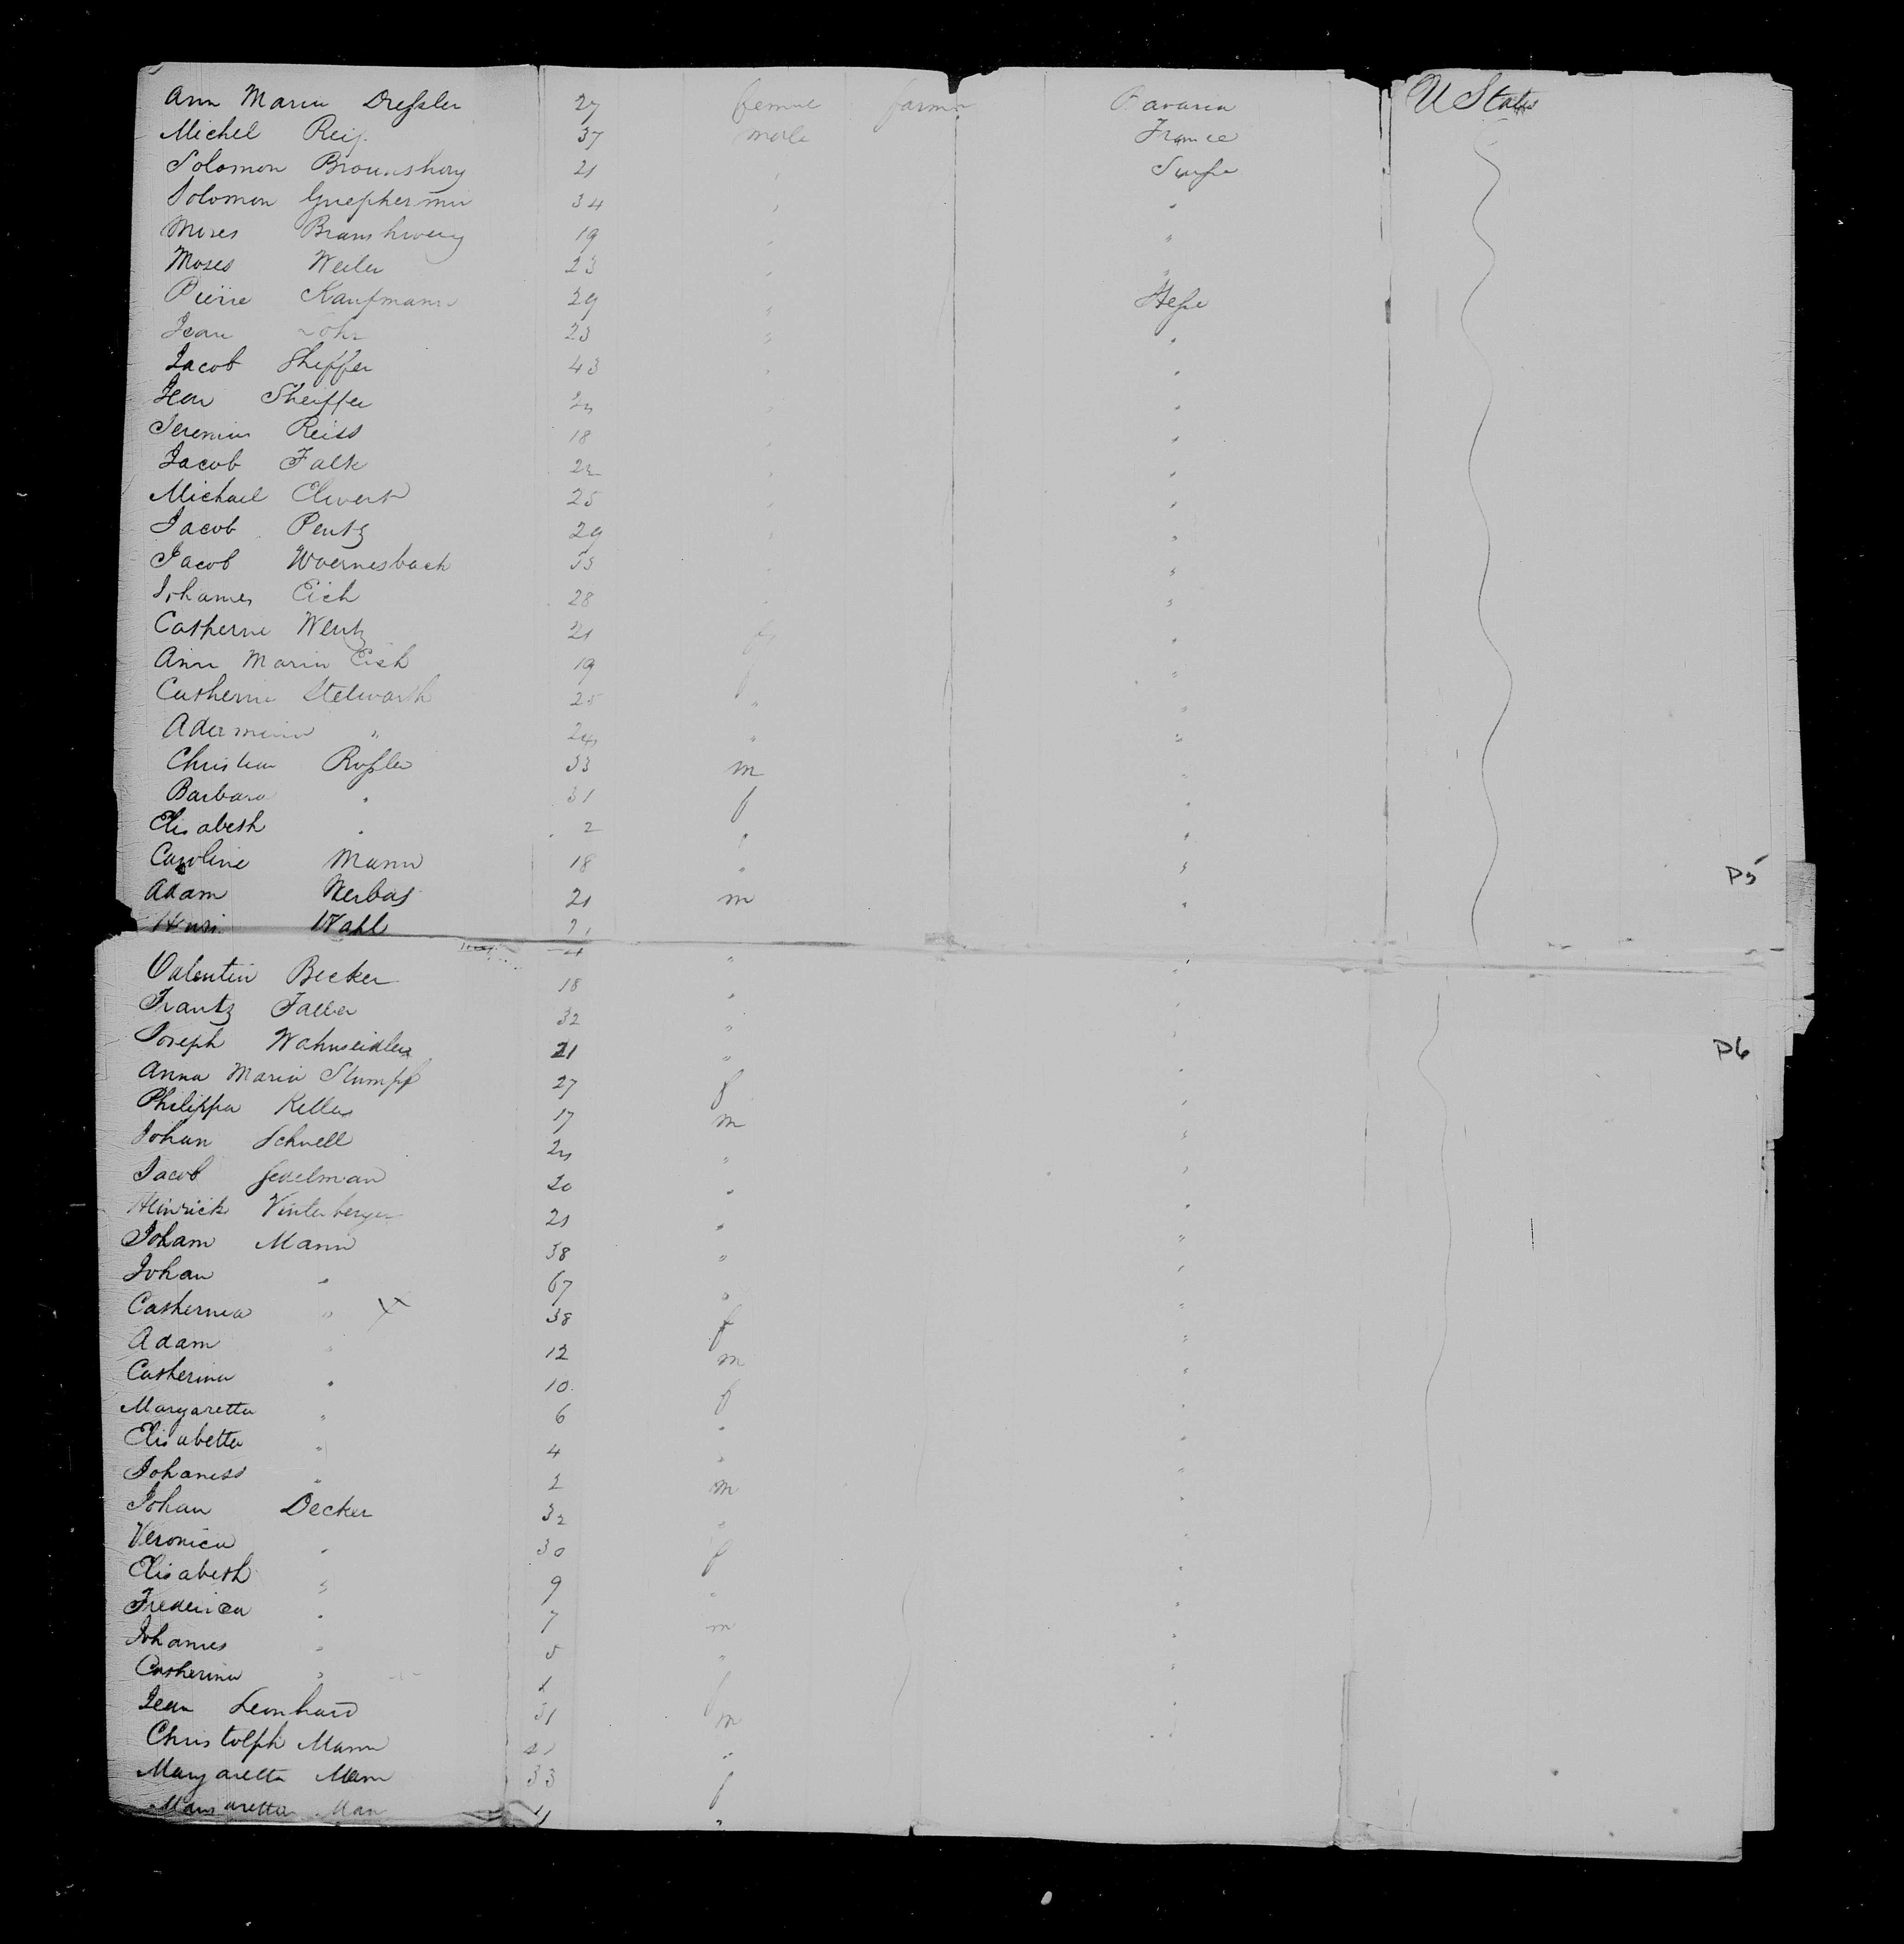 Ann Maria Dreſsler 27 female farmer Bavaria U States
Michel Reiſ 37 male France
Solomon Brounshwig 21 "
Solomon 34 " "
Moses Branshweig 19 " "
Moses Weiler 23 " "
Pierre Kaufmann 29 " Heſse
Jean Lohr 23 " "
Jacob Sheffer 43 " "
Jean Sheiffer " "
Jeremius Reiss 18 " "
Jacob Falk 22 " "
Michael Elwert 25 " "
Jacob Pentz 29 " "
Jacob Woernesbach 33 " "
Johannes Eich 28 " "
Catherine Wentz 21 f "
Ann Maria Eich 19 "
Catherine Stelwarth 25 " "
" 24 " "
Christian Roſsler 33 m "
Barbara " 31 f "
Elisabeth " 2 " "
Caroline Mann 18 " "
Adam Werbas 21 m "
Henri Wahl 21
Valentin Becker 18 " "
Frantz Faller 32 " "
Joseph 21 " "
Anna Maria Stumpf 27 f "
Philippa Keller 17 m "
Johan Schnell " "
Jacob 20 " "
Heinrich Vinterberger 21 " "
Joham Mann 38 " "
Johan " 67 " "
Catherina " X 38 f "
Adam " 12 m "
Catherina " 10 f "
Margaretta " 6 " "
Elisabetta " 4 " "
Johaness " 2 m "
Johan Decker 32 " "
Veronica " 30 f "
Elisabeth " 9 " "
Frederica " 7 m "
Johannes " 5 " "
Catherina " 1 f "
Jean Leonhard 31 m "
Christolph Mann "
Margaretta Mann 33 f
Margaretta Man 11 "
P5
P6